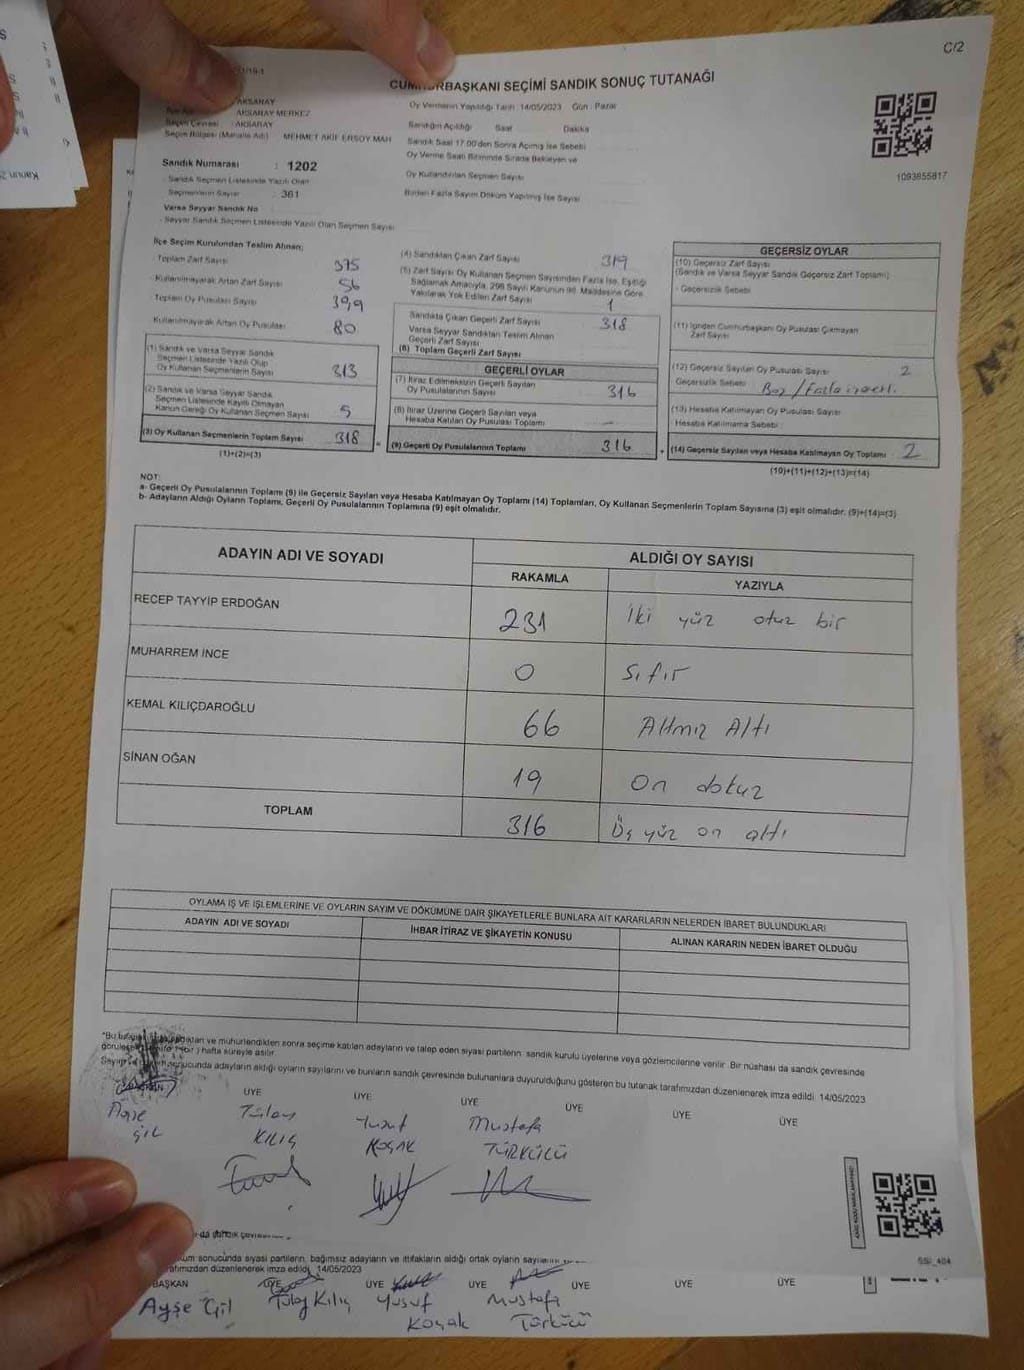 C/2
CUMHURBAŞKANI SEÇİMİ SANDIK SONUÇ TUTANAĞI
AKSARAY
AKSARAY MERKEZ
Seçim Çevresi : AKSARAY
Seçim Bölgesi (Mahalle Adı) MEHMET AKİF ERSOY MAH
Sandık Numarası : 1202
Sandık Seçmen Listesinde Yazılı Olan
Seçmenlerin Sayısı : 361
Varsa Seyyar Sandık No
Seyyar Sandık Seçmen Listesinde Yazılı Olan Seçmen Sayısı
Oy Vermenin Yapıldığı Tarih 14/05/2023 Gün : Pazar
Sandığın Açıldığı Saat Dakika
Sandık Saat 17.00'den Sonra Açılmış İse Sebebi
Oy Verme Saati Bitiminde Sırada Bekleyen ve
Oy Kullandırılan Seçmen Sayısı
Birden Fazla Sayım Döküm Yapılmış İse Sayısı
1093855817
İlçe Seçim Kurulundan Teslim Alınan;
Toplam Zarf Sayısı 375
Kullanılmayarak Artan Zarf Sayısı 56
Toplam Oy Pusulası Sayısı 399
Kullanılmayarak Artan Oy Pusulası 80
(1) Sandık ve Varsa Seyyar Sandık
Seçmen Listesinde Yazılı Olup
Oy Kullanan Seçmenlerin Sayısı 313
(2) Sandık ve Varsa Seyyar Sandık
Seçmen Listesinde Kayıtlı Olmayan
Kanun Gereği Oy Kullanan Seçmen Sayısı 5
(3) Oy Kullanan Seçmenlerin Toplam Sayısı 318
(1)+(2)=(3)
(4) Sandıktan Çıkan Zarf Sayısı 319
(5) Zarf Sayısı Oy Kullanan Seçmen Sayısından Fazla İse, Eşitliği
Sağlamak Amacıyla, 298 Sayılı Kanunun 98. Maddesine Göre
Yakılarak Yok Edilen Zarf Sayısı 1
Sandıkta Çıkan Geçerli Zarf Sayısı 318
Varsa Seyyar Sandıktan Teslim Alınan
Geçerli Zarf Sayısı
(6) Toplam Geçerli Zarf Sayısı
GEÇERLİ OYLAR
(7) İtiraz Edilmeksizin Geçerli Sayılan
Oy Pusulalarının Sayısı 316
(8) İtiraz Üzerine Geçerli Sayılan veya
Hesaba Katılan Oy Pusulası Toplamı
(9) Geçerli Oy Pusulalarının Toplamı 316
GEÇERSİZ OYLAR
(10) Geçersiz Zarf Sayısı
(Sandık ve Varsa Seyyar Sandık Geçersiz Zarf Toplamı)
Geçersizlik Sebebi
(11) İçinden Cumhurbaşkanı Oy Pusulası Çıkmayan
Zarf Sayısı
(12) Geçersiz Sayılan Oy Pusulası Sayısı 2
Geçersizlik Sebebi Boş / Fazla işaretli.
(13) Hesaba Katılmayan Oy Pusulası Sayısı
Hesaba Katılmama Sebebi
(14) Geçersiz Sayılan veya Hesaba Katılmayan Oy Toplamı 2
(10)+(11)+(12)+(13)=(14)
NOT:
a- Geçerli Oy Pusulalarının Toplamı (9) ile Geçersiz Sayılan veya Hesaba Katılmayan Oy Toplamı (14) Toplamları, Oy Kullanan Seçmenlerin Toplam Sayısına (3) eşit olmalıdır. (9)+(14)=(3)
b- Adayların Aldığı Oyların Toplamı, Geçerli Oy Pusulalarının Toplamına (9) eşit olmalıdır.
ADAYIN ADI VE SOYADI ALDIĞI OY SAYISI
RAKAMLA YAZIYLA
RECEP TAYYİP ERDOĞAN 231 İki yüz otuz bir
MUHARREM İNCE 0 Sıfır
KEMAL KILIÇDAROĞLU 66 Altmış Altı
SİNAN OĞAN 19 On dokuz
TOPLAM 316 Üç yüz on altı
OYLAMA İŞ VE İŞLEMLERİNE VE OYLARIN SAYIM VE DÖKÜMÜNE DAİR ŞİKAYETLERLE BUNLARA AİT KARARLARIN NELERDEN İBARET BULUNDUKLARI
ADAYIN ADI VE SOYADI İHBAR İTİRAZ VE ŞİKAYETİN KONUSU ALINAN KARARIN NEDEN İBARET OLDUĞU
ve mühürlendikten sonra seçime katılan adayların ve talep eden siyasi partilerin sandık kurulu üyelerine veya gözlemcilerine verilir. Bir nüshası da sandık çevresinde
hafta süreyle asılır.
sonucunda adayların aldığı oyların sayılarını ve bunların sandık çevresinde bulunanlara duyurulduğunu gösteren bu tutanak tarafımızdan düzenlenerek imza edildi. 14/05/2023
ÜYE ÜYE ÜYE ÜYE ÜYE ÜYE
Ayşe Tülay Yusuf Mustafa
GİL KILIÇ KOÇAK TÜRKÜCÜ
SSİ_404
sonucunda siyasi partilerin, bağımsız adayların ve ittifakların aldığı ortak oyların
tarafımızdan düzenlenerek imza edildi. 14/05/2023
BAŞKAN ÜYE ÜYE ÜYE ÜYE ÜYE ÜYE
Ayşe Gil Tülay Kılıç Yusuf Mustafa
Koçak Türkücü